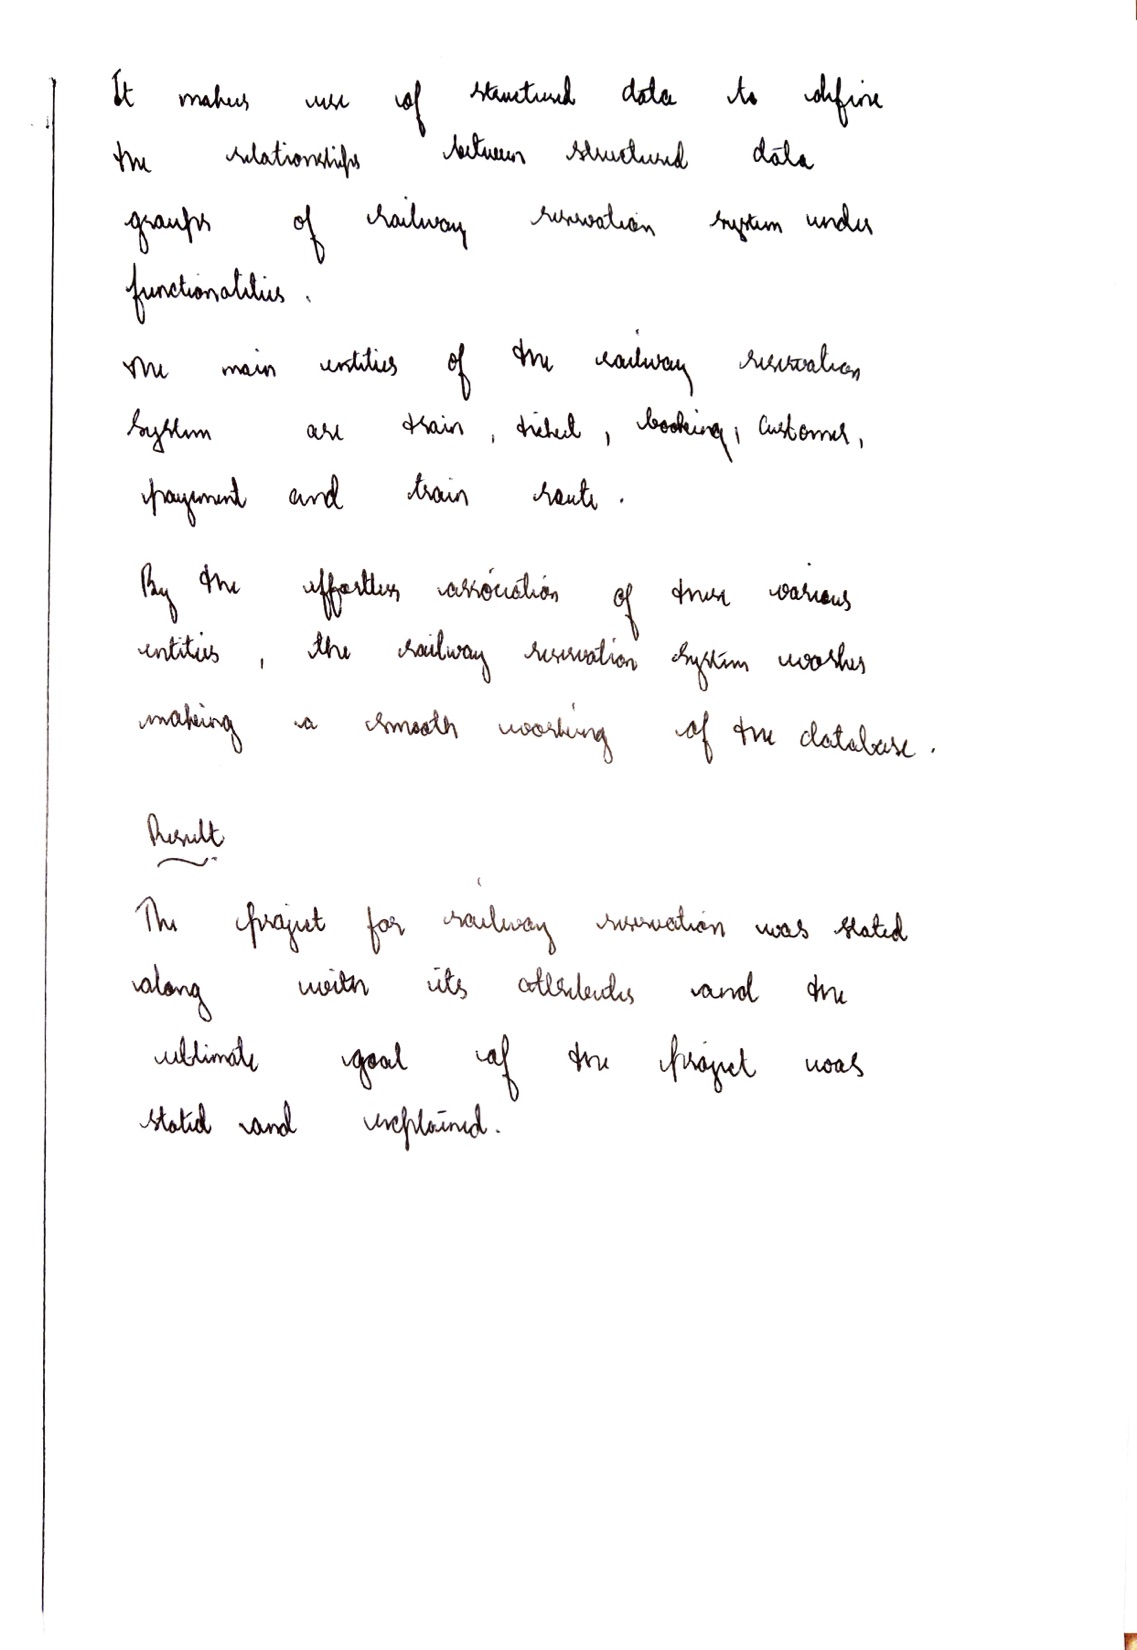 It makes use of structured data to define
the relationships between structured data
groups of railway reservation system under
functionalities.
The main entities of the railway reservation
system are train, ticket, booking, customer,
payment and train route.
By the effortless association of these various
entities, the railway reservation system works
making a smooth working of the database.
Result
The project for railway reservation was stated
along with its attributes and the
ultimate goal of the project was
stated and explained.